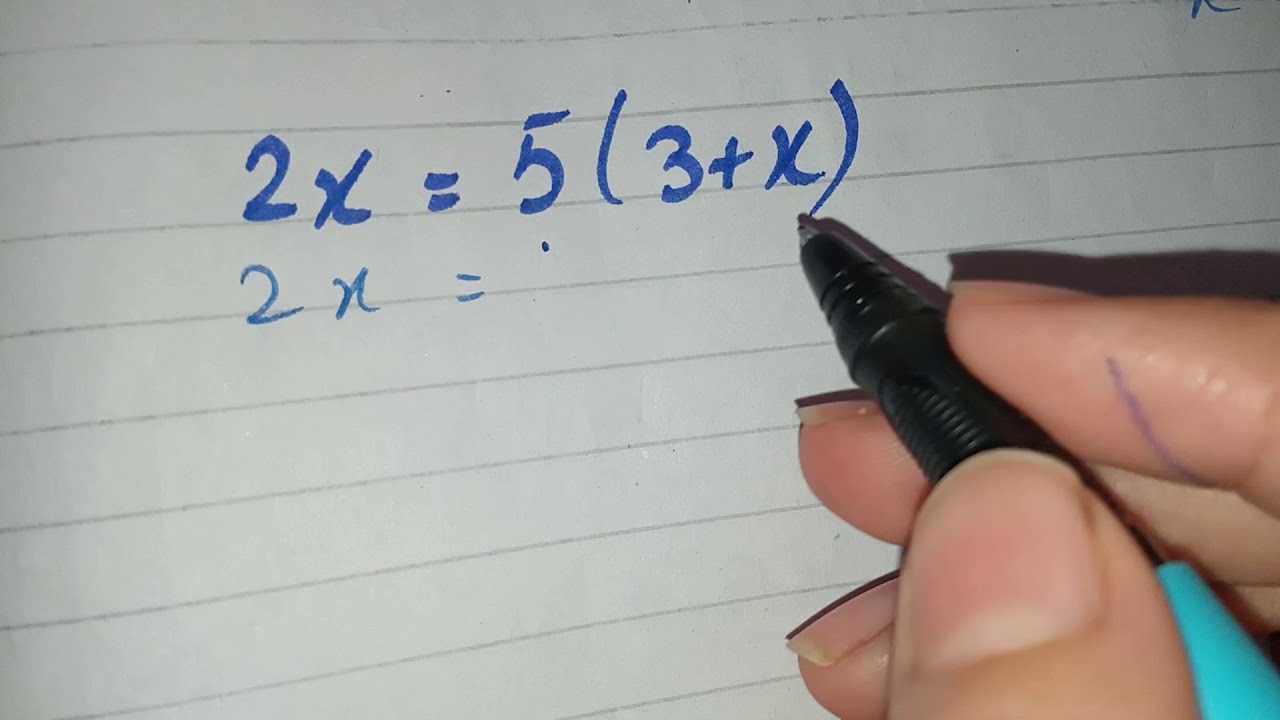 2x = 5(3+x)
2x =